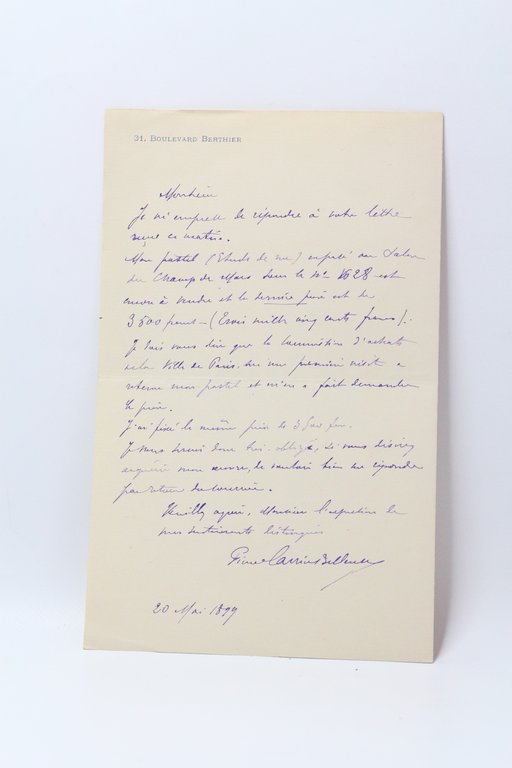 31, BOULEVARD BERTHIER
Monsieur
Je m'empresse de répondre à votre lettre
reçue ce matin.
Mon pastel (Etude de nu) exposé au Salon
du Champ de Mars sous le No 1628 est
encore à vendre et le dernier prix est de
3500 francs - (Trois mille cinq cents francs).
Je dois vous dire que la Commission d'achats
de la Ville de Paris, dans une première visite a
retenu mon pastel et m'en a fait demander
le prix.
J'ai fixé le même prix de 3500 frs.
Je vous serais donc très obligé, si vous désirez
acquérir mon œuvre, de vouloir bien me répondre
par retour du courrier.
Veuillez agréer, Monsieur l'expression de
mes sentiments distingués
Pierre Carrier Belleuse
20 Mai 1899